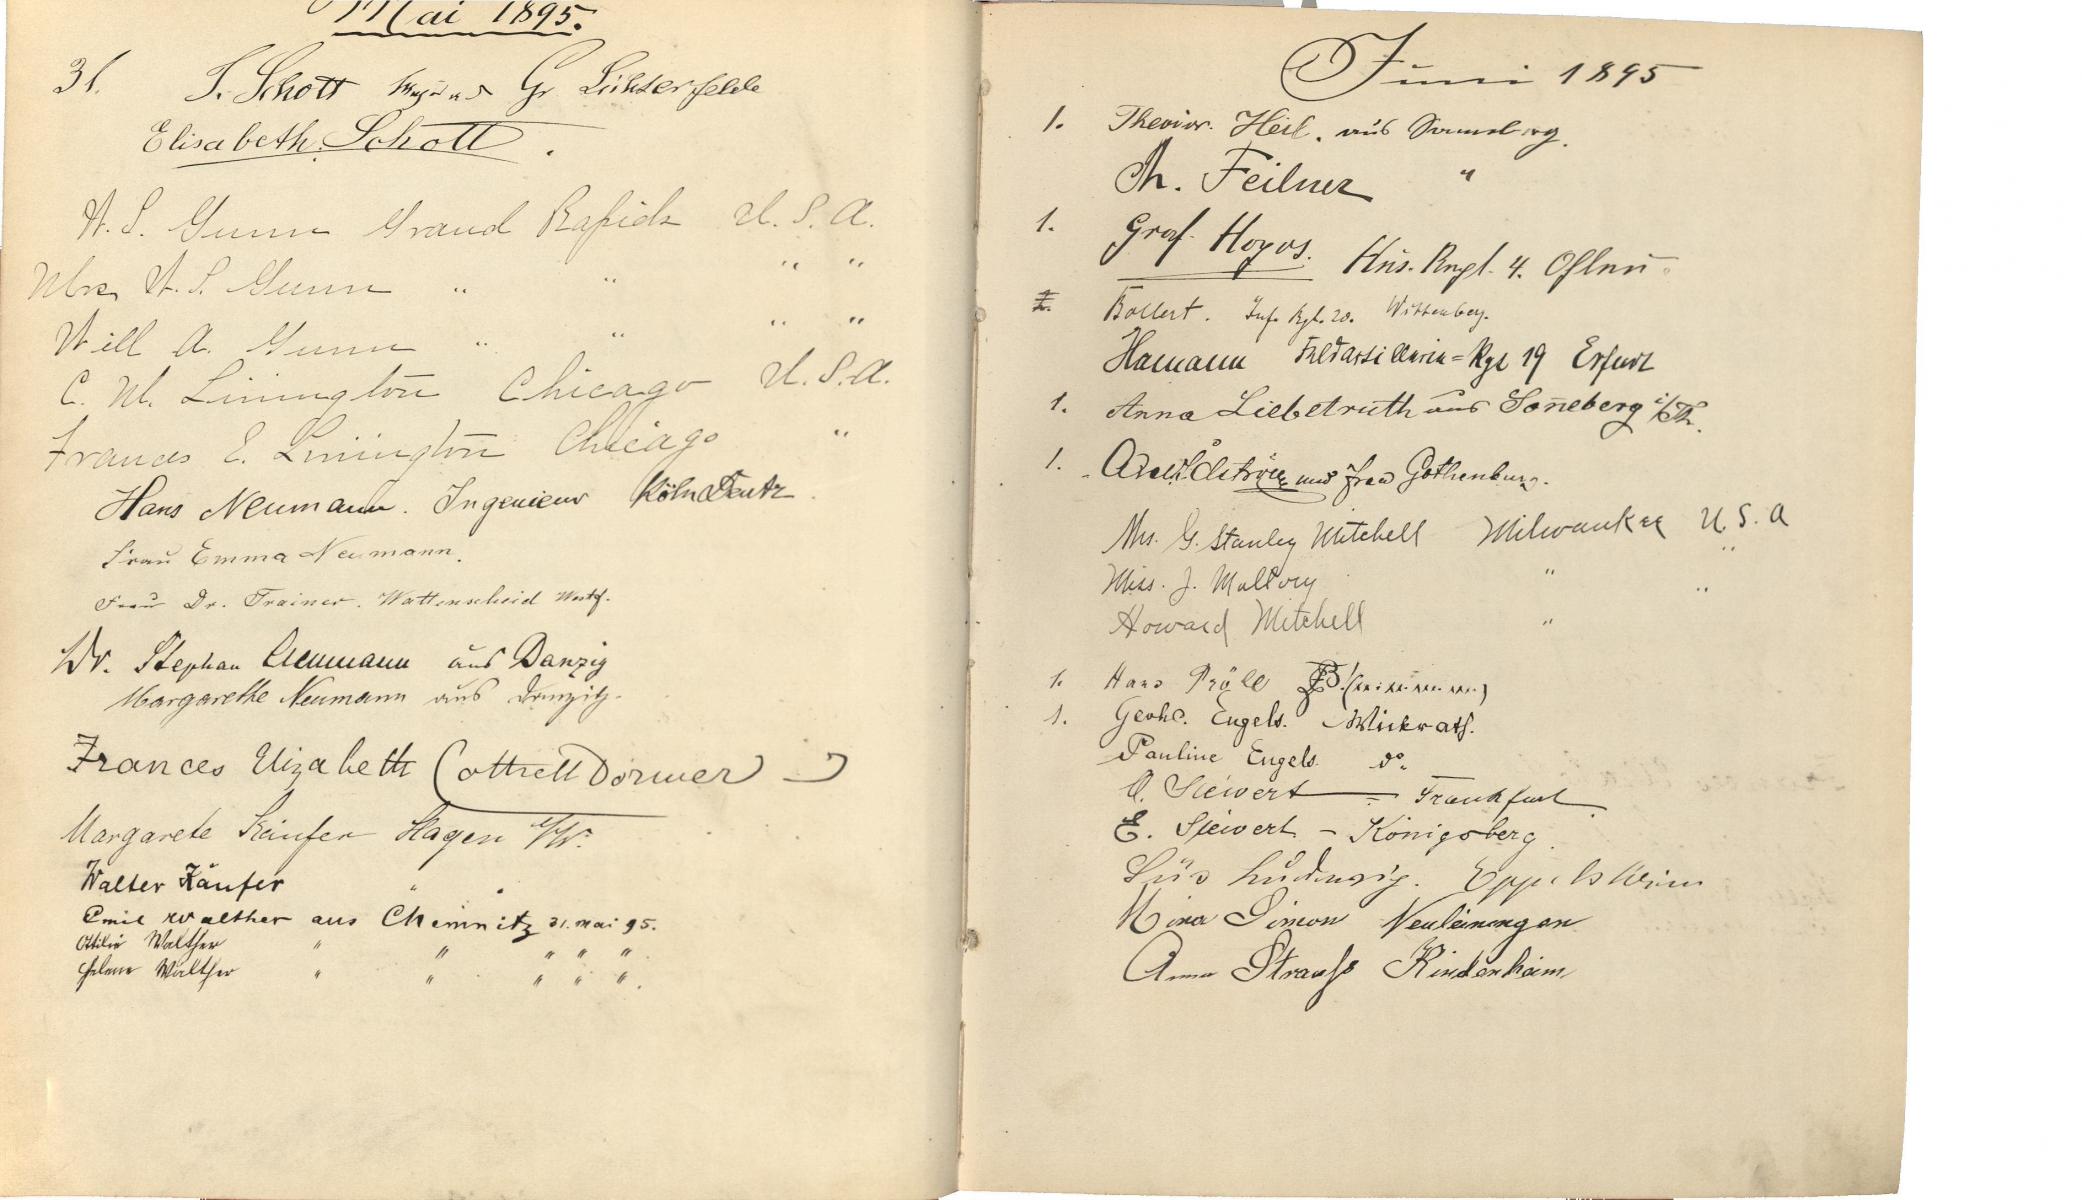 Mai 1895.
31. S. Schott aus Gr Lichterfelde
Elisabeth Schott.
W. S. Gunn Grand Rapids U. S. A.
Mrs W. S. Gunn " " " "
Will A. Gunn " " " "
C. M. Linington Chicago U. S. A.
Frances E. Linington Chicago "
Hans Neumann. Ingenieur Köln Deutz.
Frau Emma Neumann.
Frau Dr. Trainer. Wattenscheid Westf.
Dr. Stephan Neumann aus Danzig
Margarethe Neumann aus Danzig.
Frances Elizabeth Cottrell Dormer
Margarete Käufer Hagen i/W.
Walter Käufer " "
Emil Walther aus Chemnitz 31. Mai 95.
Ottilie Walther " " " " "
Helene Walther " " " " ".
Juni 1895
1. Theodor. Heil. aus
Th. Feilner "
1. Graf Hoyos. Hus. Rgt. 4. Ohlau.
Bollert. Inf. Rgt. 20. Wittenberg.
Hamann Feldartillerie=Rgt 19 Erfurt
1. Anna Liebetruth aus Soñeberg i/Th.
1. und Frau Gothenburg.
Mrs. G. Stanley Mitchell Milwaukee U. S. A
Miss. J. Mallory " "
Howard Mitchell " "
1. Hans Pröll
1. Gerh. Engels. Wickrath.
Pauline Engels. do.
O. Siewert — Frankfurt
E. Siewert – Königsberg.
Ludwig. Eppelsheim
Nina Simon Neuleiningen
Anna Strauß Rindenheim